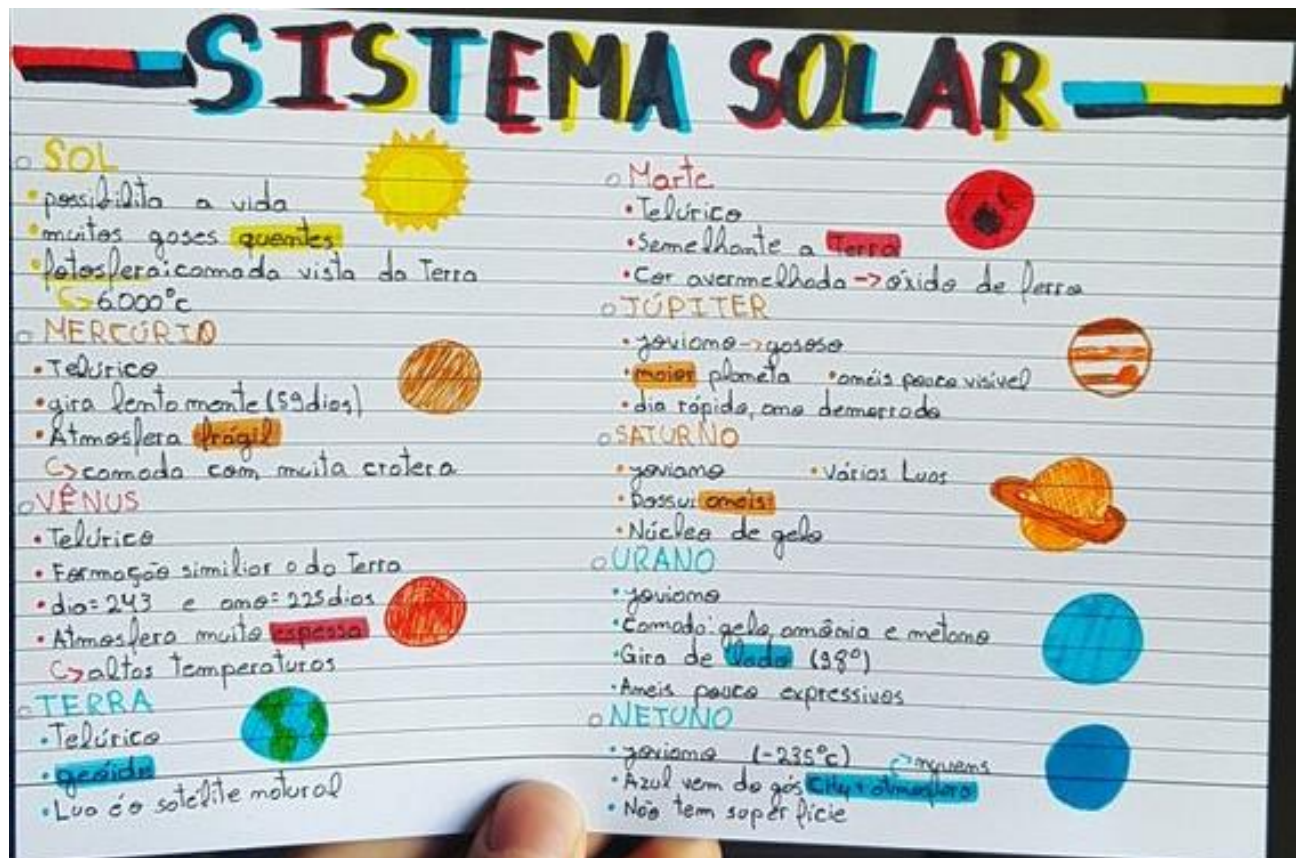 SISTEMA SOLAR
SOL
• possibilita a vida
• muitos gases quentes
• fotosfera: camada vista da Terra
↳ 6.000°c
MERCÚRIO
• Telúrico
• gira lentamente (59 dias)
• Atmosfera frágil
↳ camada com muita cratera
VÊNUS
• Telúrico
• Formação similiar a da Terra
• dia = 243 e ano = 225 dias
• Atmosfera muito espessa
↳ altas temperaturas
TERRA
• Telúrico
• geóide
• Lua é o satélite natural
Marte
• Telúrico
• Semelhante a Terra
• Cor avermelhada -> óxido de ferro
JÚPITER
• joviano -> gasoso
• maior planeta • anéis pouco visível
• dia rápido, ano demorrado
SATURNO
• joviano • Vários Luas
• Possui anéis
• Núcleo de gelo
URANO
• joviano
• Camada: gelo, amônia e metano
• Gira de lado (98°)
• Aneis pouco expressivos
NETUNO
• joviano (-235°c) nuvens
• Azul vem do gás CH4 + atmosfera
• Não tem superfície